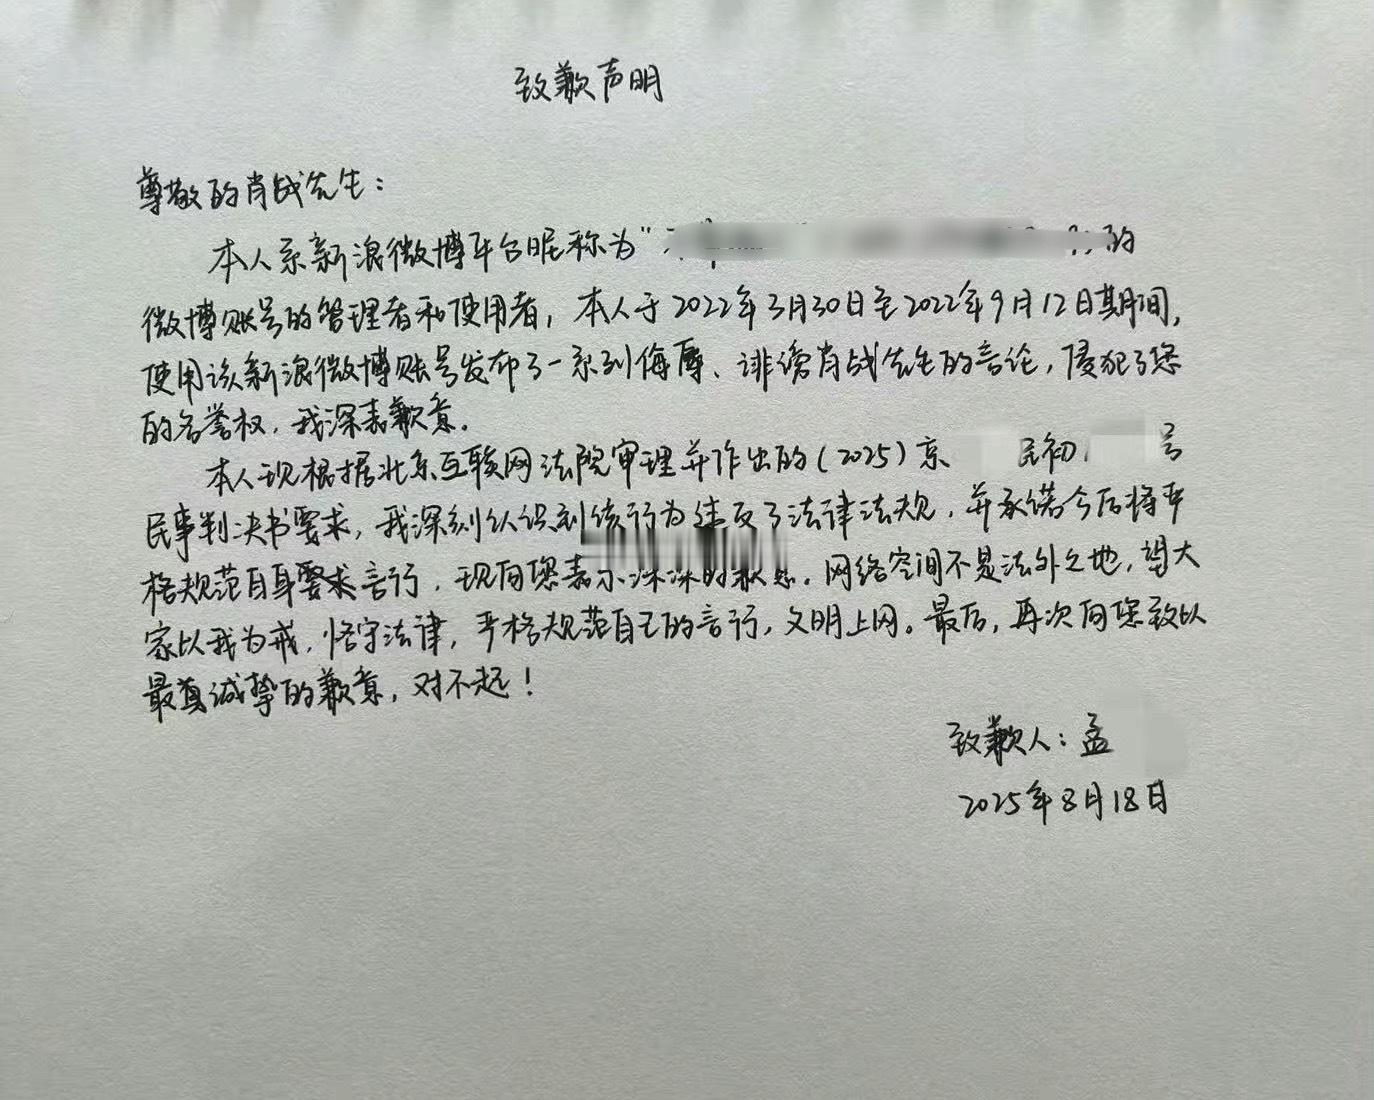 致歉声明
尊敬的肖战先生：
本人系新浪微博平台昵称为“ 的
微博账号的管理者和使用者，本人于2022年3月30日至2022年9月12日期间，
使用该新浪微博账号发布了一系列侮辱、诽谤肖战先生的言论，侵犯了您
的名誉权，我深表歉意。
本人现根据北京互联网法院审理并作出的（2025）京 民初 号
民事判决书要求，我深刻认识到该行为违反了法律法规，并承诺今后将严
格规范自身要求言行，现向您表示深深的歉意。网络空间不是法外之地，望大
家以我为戒，恪守法律，严格规范自己的言行，文明上网。最后，再次向您致以
最真诚挚的歉意，对不起！
致歉人：孟
2025年8月18日